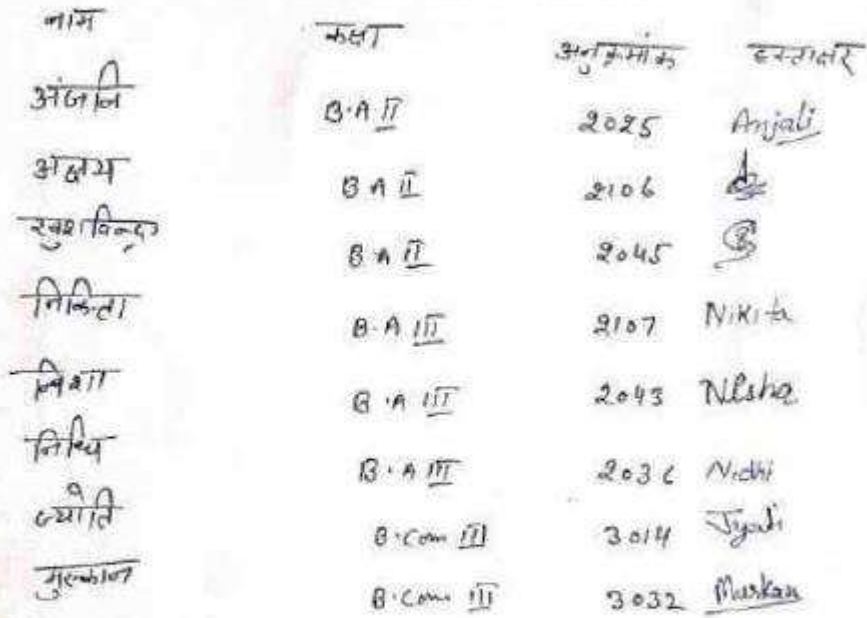 नाम कक्षा अनुक्रमांक हस्ताक्षर
अंजलि B.A II 2025 Anjali
अक्षय B A II 2106
खुशविन्द्र B A II 2045
निकिता B.A III 2107 Nikita
निशा B.A III 2043 Nisha
निधि B.A III 2036 Nidhi
ज्योति B.Com III 3014 Jyoti
मुस्कान B.Com III 3032 Muskan